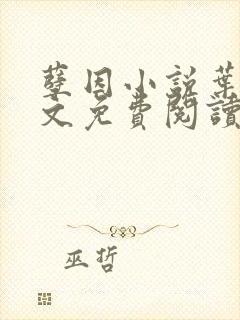 孽因小説葉
文免費閱讀
巫哲